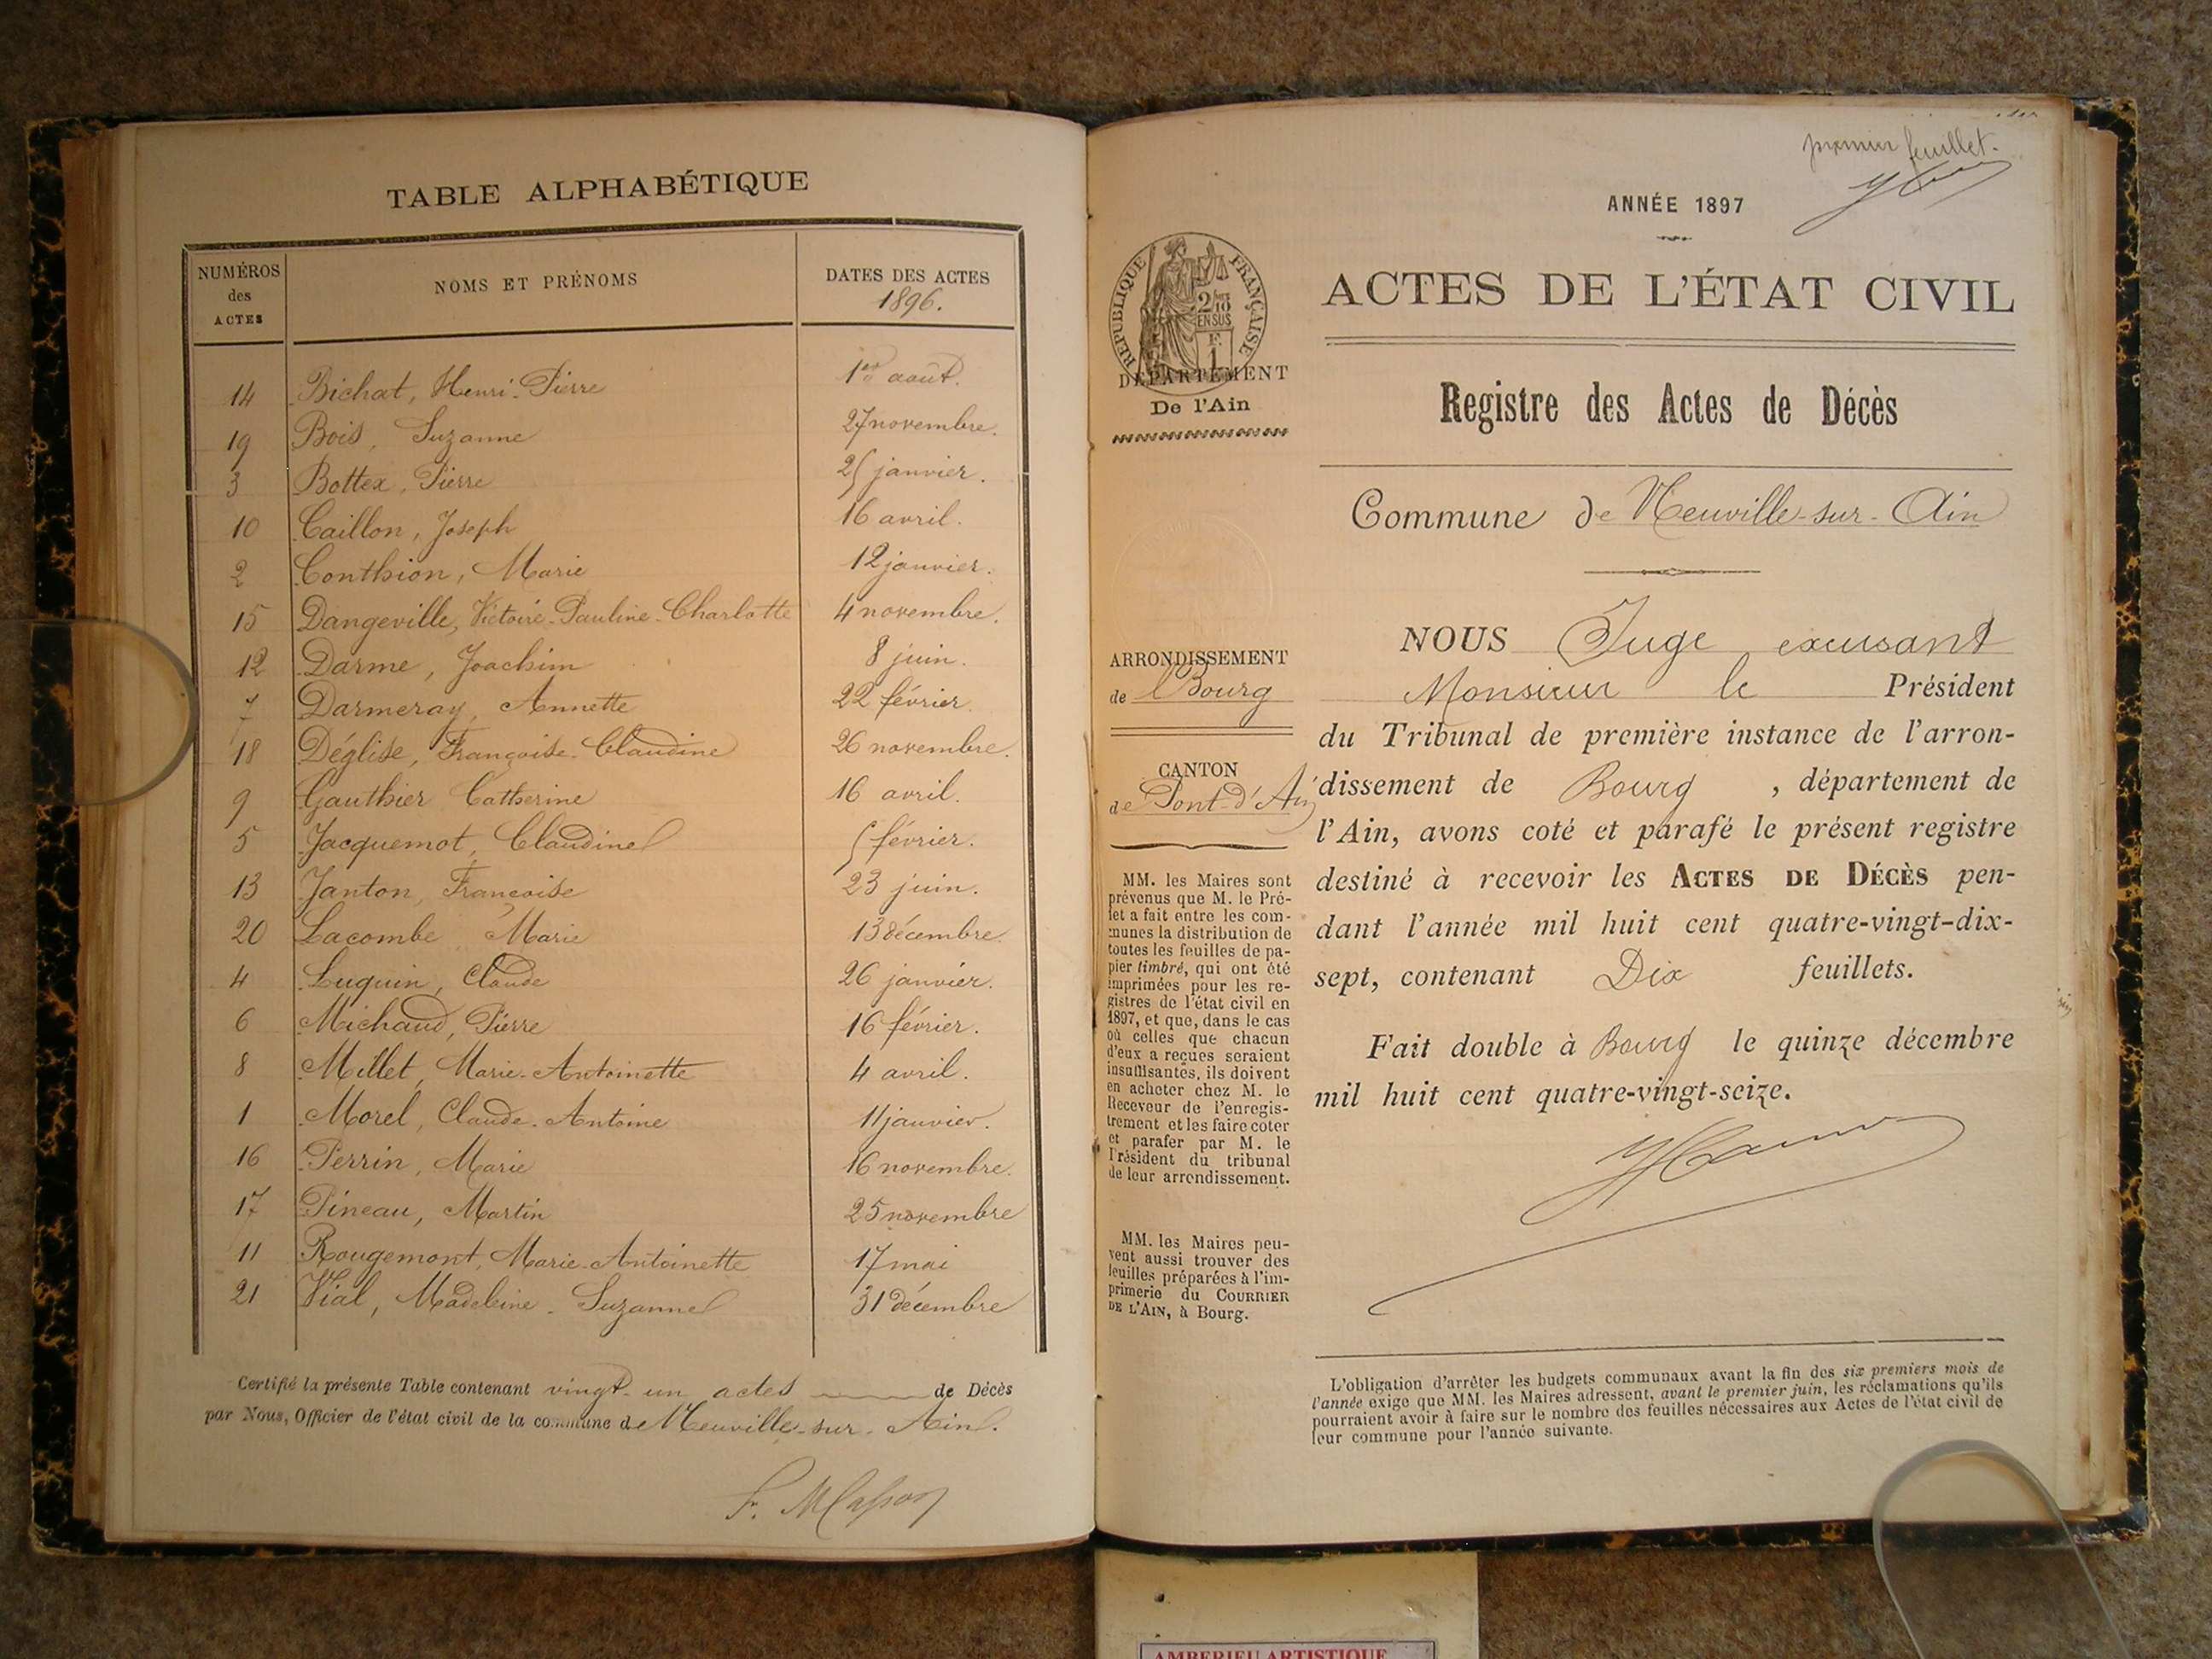 TABLE ALPHABÉTIQUE
NUMÉROS des ACTES
NOMS ET PRÉNOMS
DATES DES ACTES
1896.
14 Bichat, Henri-Pierre 1er août.
19 Bois, Suzanne 27 novembre.
3 Bottex, Pierre 25 janvier.
10 Caillon, Joseph 16 avril.
2 Conthion, Marie 12 janvier.
15 Dangeville, Victoire-Pauline-Charlotte 4 novembre.
12 Darme, Joachim 8 juin.
7 Darmeray, Annette 22 février.
18 Déglise, Françoise-Claudine 26 novembre.
9 Gauthier Catherine 16 avril.
5 Jacquemot, Claudine 5 février.
13 Janton, Françoise 23 juin.
20 Lacombe Marie 13 décembre.
4 Luquin, Claude 26 janvier.
6 Michaud, Pierre 16 février.
8 Millet, Marie-Antoinette 4 avril.
1 Morel, Claude-Antoine 11 janvier.
16 Perrin, Marie 16 novembre.
17 Pineau, Martin 25 novembre
11 Rougemont, Marie-Antoinette 17 mai
21 Vial, Madeleine-Suzanne 31 décembre
Certifié la présente Table contenant vingt-un actes de Décès
par Nous, Officier de l'état civil de la commune de Neuville-sur-Ain.
premier feuillet.
ANNÉE 1897
ACTES DE L'ÉTAT CIVIL
Registre des Actes de Décès
Commune de Neuville-sur-Ain
RÉPUBLIQUE FRANÇAISE
2/10
EN SUS
F.
1
DÉPARTEMENT
De l'Ain
ARRONDISSEMENT
de Bourg
CANTON
de Pont-d'Ain
MM. les Maires sont
prévenus que M. le Pré-
fet a fait entre les com-
munes la distribution de
toutes les feuilles de pa-
pier timbré, qui ont été
imprimées pour les re-
gistres de l'état civil en
1897, et que, dans le cas
où celles que chacun
d'eux a reçues seraient
insuffisantes, ils doivent
en acheter chez M. le
Receveur de l'enregis-
trement et les faire coter
et parafer par M. le
Président du tribunal
de leur arrondissement.
MM. les Maires peu-
vent aussi trouver des
feuilles préparées à l'im-
primerie du COURRIER
DE L'AIN, à Bourg.
NOUS Juge excusant
Monsieur le Président
du Tribunal de première instance de l'arron-
dissement de Bourg , département de
l'Ain, avons coté et parafé le présent registre
destiné à recevoir les ACTES DE DÉCÈS pen-
dant l'année mil huit cent quatre-vingt-dix-
sept, contenant Dix feuillets.
Fait double à Bourg le quinze décembre
mil huit cent quatre-vingt-seize.
L'obligation d'arrêter les budgets communaux avant la fin des six premiers mois de
l'année exige que MM. les Maires adressent, avant le premier juin, les réclamations qu'ils
pourraient avoir à faire sur le nombre des feuilles nécessaires aux Actes de l'état civil de
leur commune pour l'année suivante.
AMBERIEU ARTISTIQUE